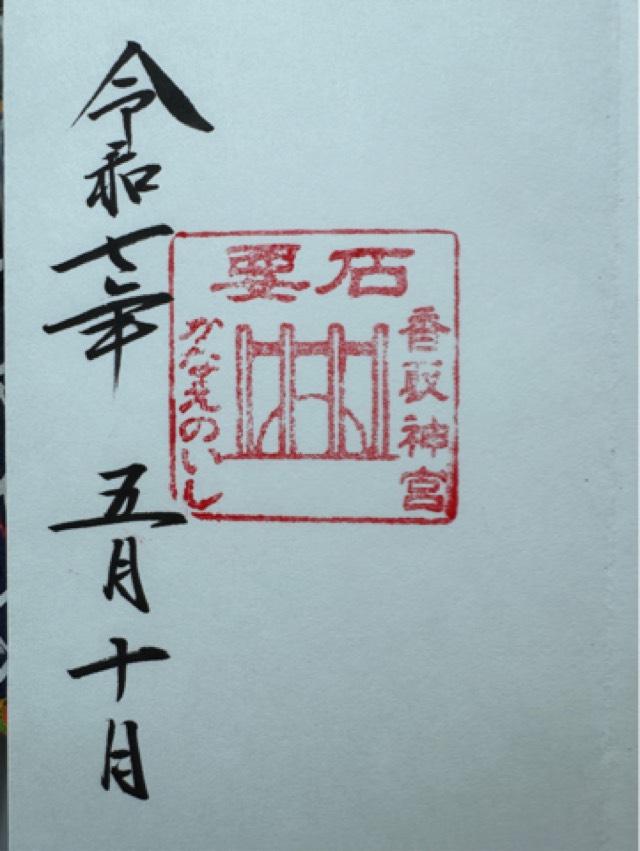 香取神宮
要石
のいし
令和七年 五月十日